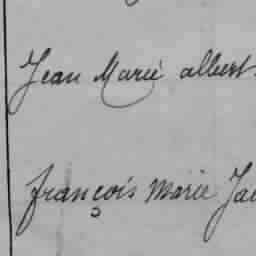 Jean Marie albert
françois Marie